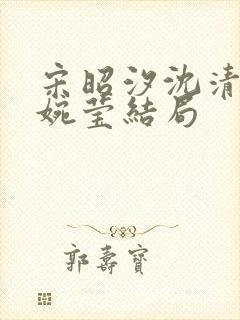 宋昭汐沈清
婉莹結局
郭壽寶